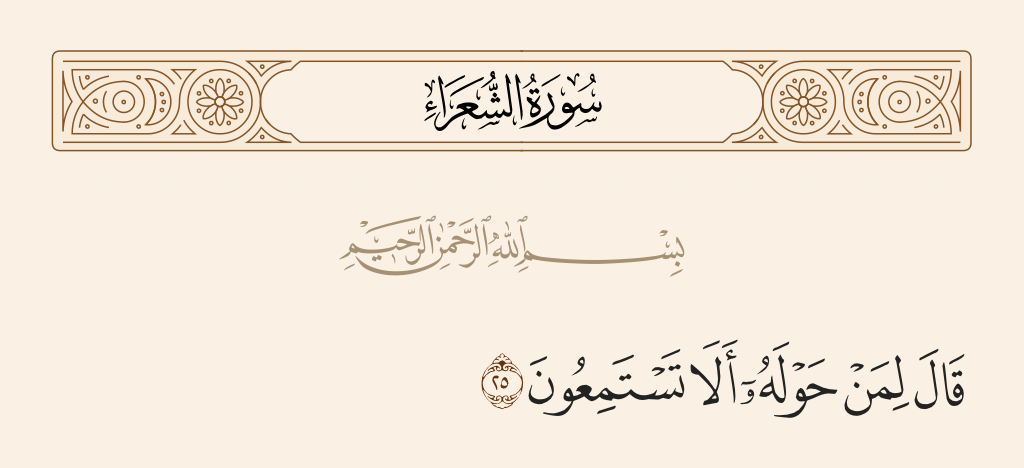 سُورَةُ الشُّعَرَاءِ
بِسْمِ ٱللَّهِ ٱلرَّحْمَٰنِ ٱلرَّحِيمِ
قَالَ لِمَنْ حَوْلَهُۥٓ أَلَا تَسْتَمِعُونَ ٢٥